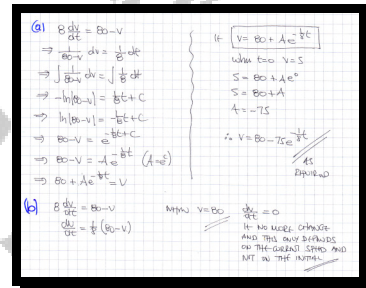 (a) 8 dv/dt = 80-v
⇒ 1/(80-v) dv = 1/8 dt
⇒ ∫ 1/(80-v) dv = ∫ 1/8 dt
⇒ -ln|80-v| = 1/8 t + C
⇒ ln|80-v| = -1/8 t + C
⇒ 80-v = e^(-1/8 t + C)
⇒ 80-v = Ae^(-1/8 t) (A=e^c)
⇒ 80 + Ae^(-1/8 t) = v
If v = 80 + Ae^(-1/8 t)
when t=0 v=5
5 = 80 + Ae^0
5 = 80+A
A = -75
∴ v = 80-75e^(-1/8 t)
AS
REQUIRED
(b) 8 dv/dt = 80-v
dv/dt = 1/8 (80-v)
v=80
dv/dt = 0
IE NO MORE CHANGE
AND THIS ONLY DEPENDS
ON THE CURRENT SPEED AND
NOT ON THE INITIAL